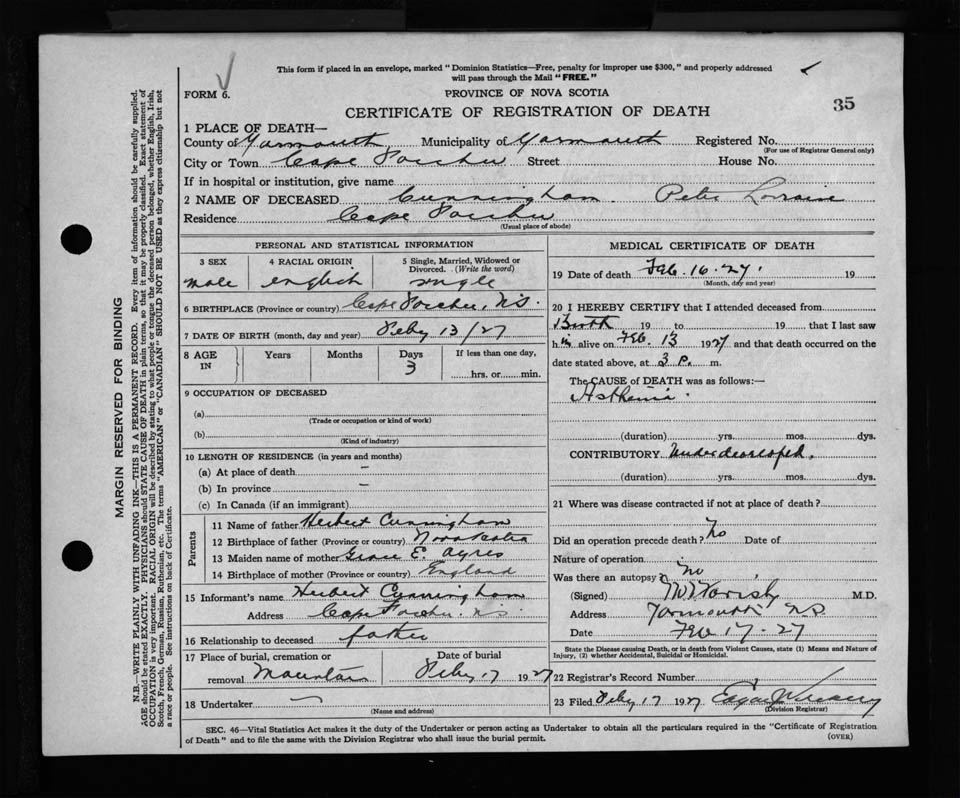 This form if placed in an envelope, marked "Dominion Statistics—Free, penalty for improper use $300," and properly addressed
will pass through the Mail "FREE."
FORM 6.
PROVINCE OF NOVA SCOTIA
CERTIFICATE OF REGISTRATION OF DEATH
35
1 PLACE OF DEATH—
County of Yarmouth Municipality of Yarmouth Registered No.
(For use of Registrar General only)
City or Town Cape Forchu Street House No.
If in hospital or institution, give name
2 NAME OF DECEASED Cunningham. Peter Lorraine
Residence Cape Forchu
(Usual place of abode)
PERSONAL AND STATISTICAL INFORMATION
3 SEX 4 RACIAL ORIGIN 5 Single, Married, Widowed or
Divorced. (Write the word)
male english single
6 BIRTHPLACE (Province or country) Cape Forchu, N.S.
7 DATE OF BIRTH (month, day and year) Feby 13/27
8 AGE IN Years Months Days If less than one day,
3 hrs. or min.
9 OCCUPATION OF DECEASED
(a)
(Trade or occupation or kind of work)
(b)
(Kind of industry)
10 LENGTH OF RESIDENCE (in years and months)
(a) At place of death –
(b) In province –
(c) In Canada (if an immigrant)
Parents
11 Name of father Herbert Cunningham
12 Birthplace of father (Province or country) Nova Scotia
13 Maiden name of mother Grace E. Ayres
14 Birthplace of mother (Province or country) England
15 Informant's name Herbert Cunningham
Address Cape Forchu N.S.
16 Relationship to deceased father
17 Place of burial, cremation or Date of burial
removal Mountain Feby 17 1927
18 Undertaker —
(Name and address)
MEDICAL CERTIFICATE OF DEATH
19 Date of death Feb. 16. 27. 19
(Month, day and year)
20 I HEREBY CERTIFY that I attended deceased from
Birth 19 to 19 that I last saw
him alive on Feb. 13 1927 and that death occurred on the
date stated above, at 3 P. m.
The CAUSE of DEATH was as follows:—
Asthenia.
(duration) yrs. mos. dys.
CONTRIBUTORY Underdeveloped.
(duration) yrs. mos. dys.
21 Where was disease contracted if not at place of death?
Did an operation precede death? No Date of
Nature of operation
Was there an autopsy? No
(Signed) M.D.
Address Yarmouth N.S.
Date Feb 17 - 27
State the Disease causing Death, or in death from Violent Causes, state (1) Means and Nature of
Injury, (2) whether Accidental, Suicidal or Homicidal.
22 Registrar's Record Number
23 Filed Feby 17 1927
(Division Registrar)
SEC. 46—Vital Statistics Act makes it the duty of the Undertaker or person acting as Undertaker to obtain all the particulars required in the "Certificate of Registration
of Death" and to file the same with the Division Registrar who shall issue the burial permit.
(OVER)
MARGIN RESERVED FOR BINDING
N.B.—WRITE PLAINLY WITH UNFADING INK—THIS IS A PERMANENT RECORD. Every item of information should be carefully supplied.
AGE should be stated EXACTLY. PHYSICIANS should STATE CAUSE OF DEATH in plain terms, so that it may be properly classified. Exact statement of
OCCUPATION is very important. RACIAL ORIGIN will be described by stating to what people or tongue the deceased person belonged, whether English, Irish,
Scotch, French, German, Russian, Ruthenian, etc. The terms "AMERICAN" or "CANADIAN" SHOULD NOT BE USED as they express citizenship but not
a race or people. See instructions on back of Certificate.